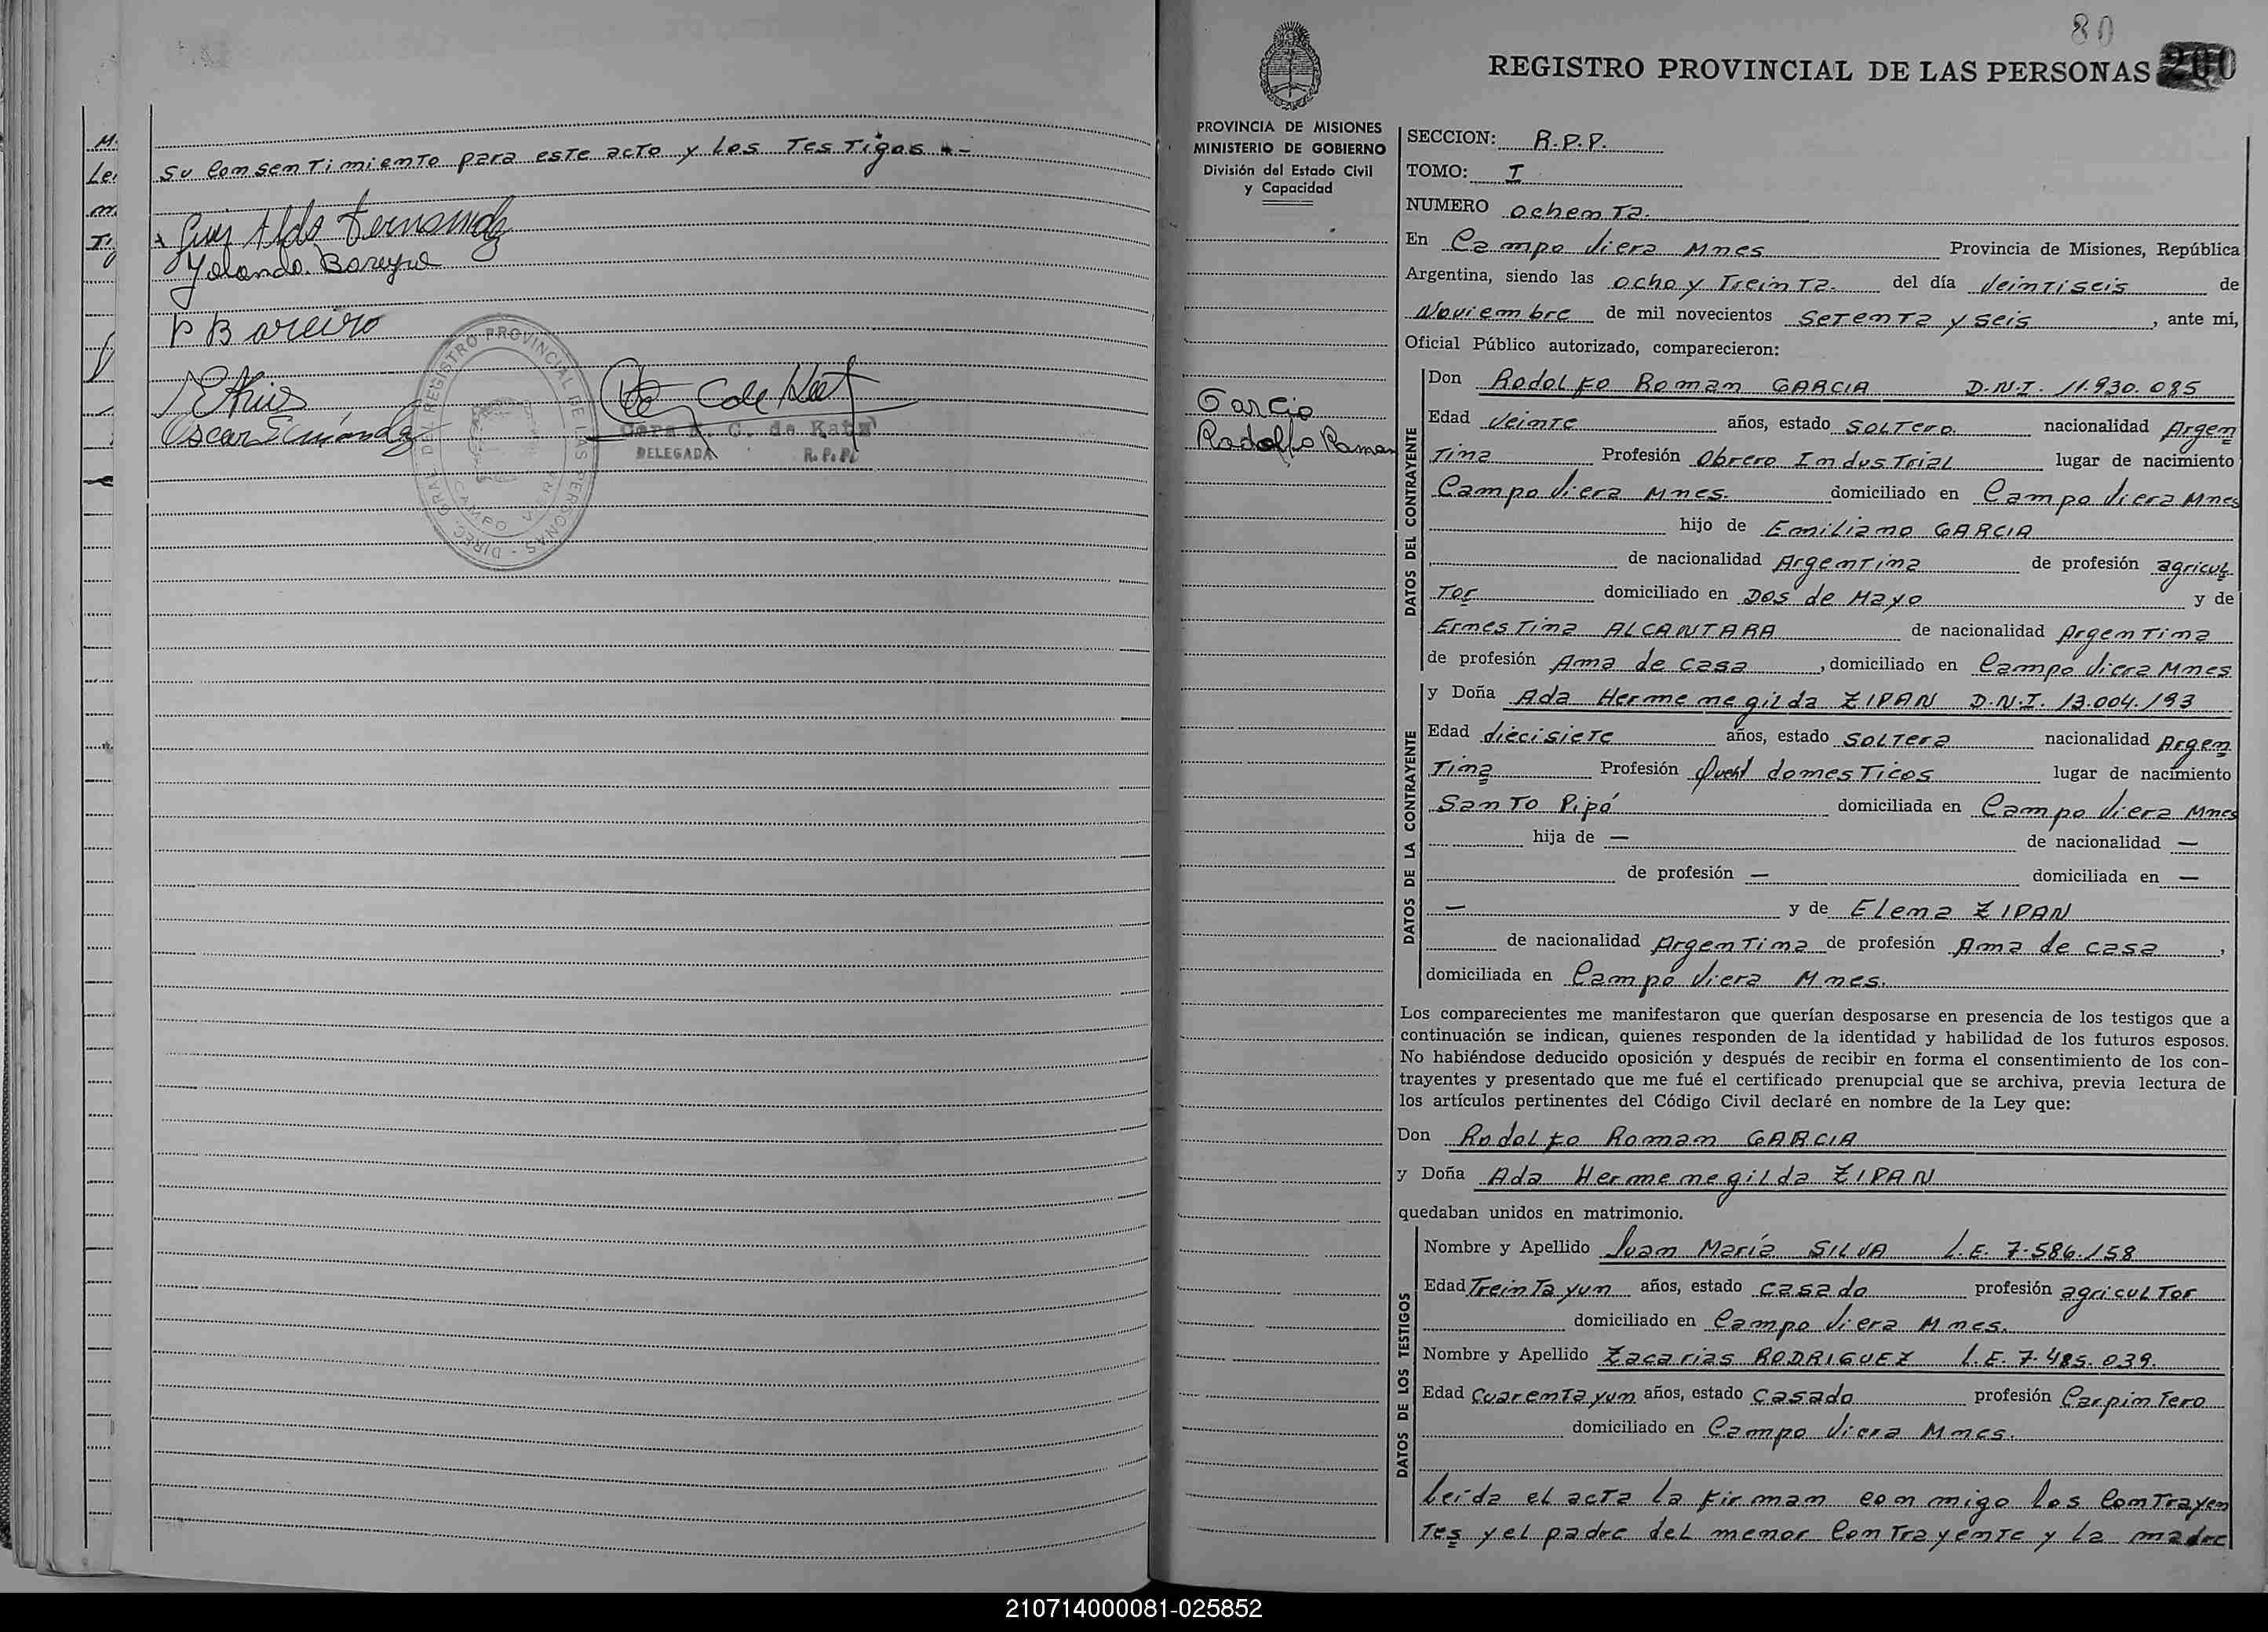 M.
Le.
su Consentimiento para este acto y los Testigos.-
Luis Aldo Fernandez
Yolanda Bareyro
P Bareiro
Oscar
DIREC. GRAL. DEL REGISTRO PROVINCIAL DE LAS PERSONAS
CAMPO VIERA
DELEGADA R.P.P.
80
REGISTRO PROVINCIAL DE LAS PERSONAS 200
PROVINCIA DE MISIONES
MINISTERIO DE GOBIERNO
División del Estado Civil
y Capacidad
Garcia
Rodolfo Roman
SECCION: R.P.P.
TOMO: I
NUMERO ochenta.
En Campo Viera Mnes Provincia de Misiones, República
Argentina, siendo las ocho y Treinta. del día Veintiseis de
Noviembre de mil novecientos Setenta y seis, ante mi,
Oficial Público autorizado, comparecieron:
DATOS DEL CONTRAYENTE
Don Rodolfo Roman GARCIA D.N.I. 11.930.085
Edad Veinte años, estado Soltero. nacionalidad Argen
tina Profesión Obrero Industrial lugar de nacimiento
Campo Viera Mnes. domiciliado en Campo Viera Mnes
hijo de Emiliano GARCIA
de nacionalidad Argentina de profesión agricul
tor domiciliado en Dos de Mayo y de
Ernestina ALCANTARA de nacionalidad Argentina
de profesión Ama de casa, domiciliado en Campo Viera Mnes
DATOS DE LA CONTRAYENTE
y Doña Ada Hermenegilda ZIPAN D.N.I. 13.004.193
Edad diecisiete años, estado Soltera nacionalidad Argen
tina Profesión Queh domesticos lugar de nacimiento
Santo Pipó domiciliada en Campo Viera Mnes
hija de — de nacionalidad —
de profesión — domiciliada en —
— y de Elena ZIPAN
de nacionalidad Argentina de profesión Ama de casa,
domiciliada en Campo Viera Mnes.
Los comparecientes me manifestaron que querían desposarse en presencia de los testigos que a
continuación se indican, quienes responden de la identidad y habilidad de los futuros esposos.
No habiéndose deducido oposición y después de recibir en forma el consentimiento de los con-
trayentes y presentado que me fué el certificado prenupcial que se archiva, previa lectura de
los artículos pertinentes del Código Civil declaré en nombre de la Ley que:
Don Rodolfo Roman GARCIA
y Doña Ada Hermenegilda ZIPAN
quedaban unidos en matrimonio.
DATOS DE LOS TESTIGOS
Nombre y Apellido Juan María SILVA L.E. 7.586.158
Edad Treinta y un años, estado casado profesión agricultor
domiciliado en Campo Viera Mnes.
Nombre y Apellido Zacarias RODRIGUEZ L.E. 7.485.039.
Edad Cuarenta y un años, estado Casado profesión Carpintero
domiciliado en Campo Viera Mnes.
Leída el acta la firman conmigo los Contrayen
tes y el padre del menor Contrayente y la madre
210714000081-025852